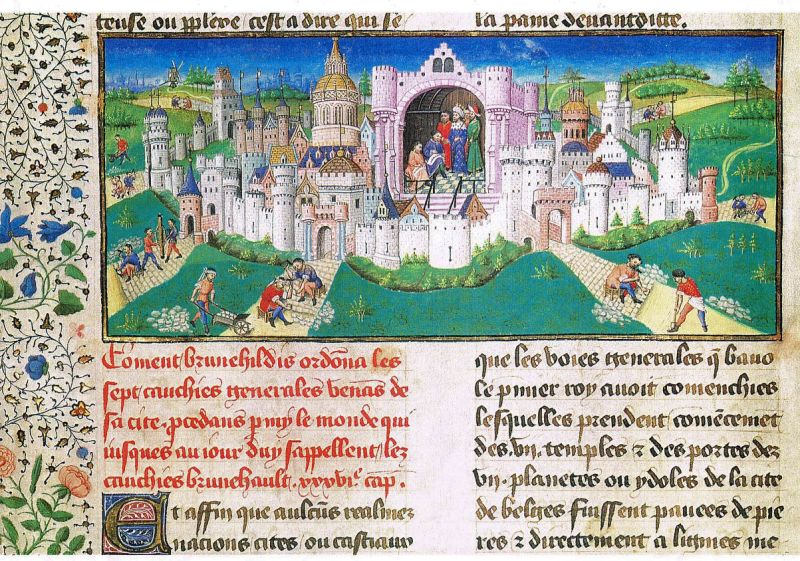 teuse ou ppleve cest a dire qui se
la paine devantditte.
Coment brunehildis ordona les
sept cauchies generales venās de
sa cite. pcedans p my le monde qui
iusques au iour duy sappellent lez
cauchies brunehault. xxxvie. cap.
Et affin que aulcūs realmez
nacions cites ou castiaux
que les voies generales q bauo
le pmier roy auoit comenchies
lesquelles prendent comēcemēt
des .vii. temples z des portes dez
vii. planetes ou ydoles de la cite
de belges fuissent pauees de pie
res z directement a lignes me